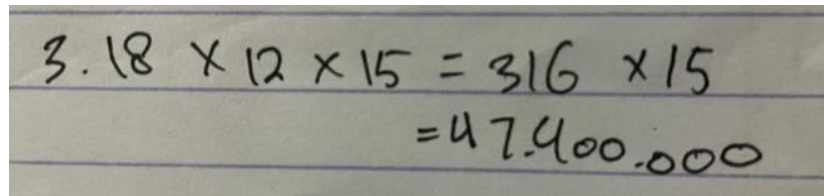 3. 18 × 12 × 15 = 316 × 15
= 47.400.000